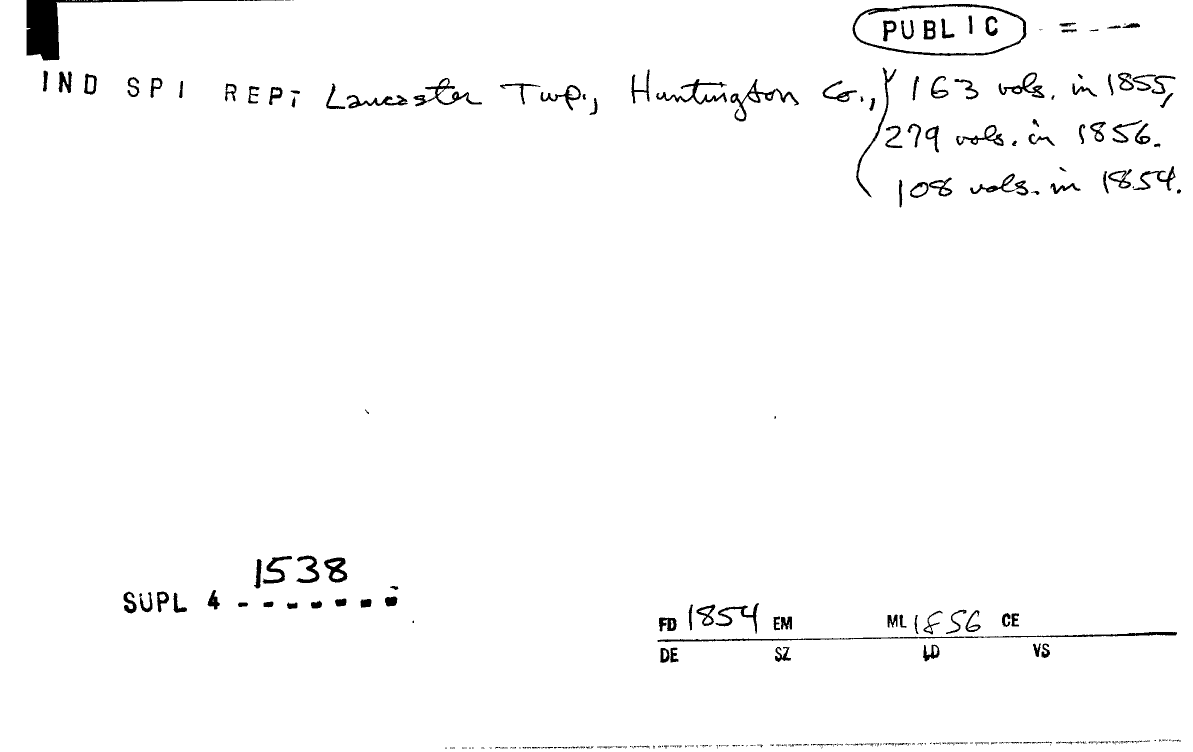 PUBLIC
IND SPI REPT Lancaster Twp., Huntington Co., 163 vols. in 1855,
279 vols. in 1856.
108 vols. in 1854.
1538
SUPL 4
FD 1854 EM ML 1856 CE
DE SZ LD VS